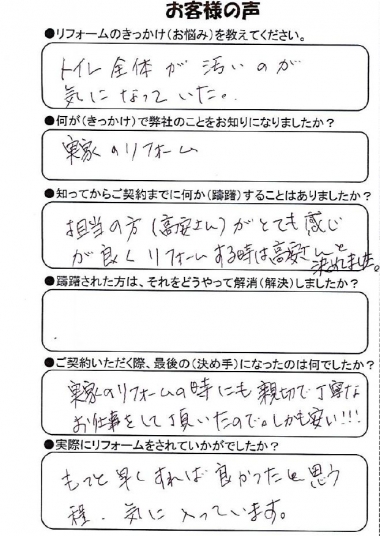 お客様の声
●リフォームのきっかけ(お悩み)を教えてください。
トイレ全体が汚いのが
気になっていた。
●何が(きっかけ)で弊社のことをお知りになりましたか?
実家のリフォーム
●知ってからご契約までに何か(躊躇)することはありましたか?
担当の方(高安さん)がとても感じ
が良くリフォームする時は高安さんと
決めれました。
●躊躇された方は、それをどうやって解消(解決)しましたか?
●ご契約いただく際、最後の(決め手)になったのは何でしたか?
実家のリフォームの時にも親切で丁寧な
お仕事をして頂いたので。しかも安い!!!
●実際にリフォームをされていかがでしたか?
もっと早くすれば良かったと思う
程、気に入っています。